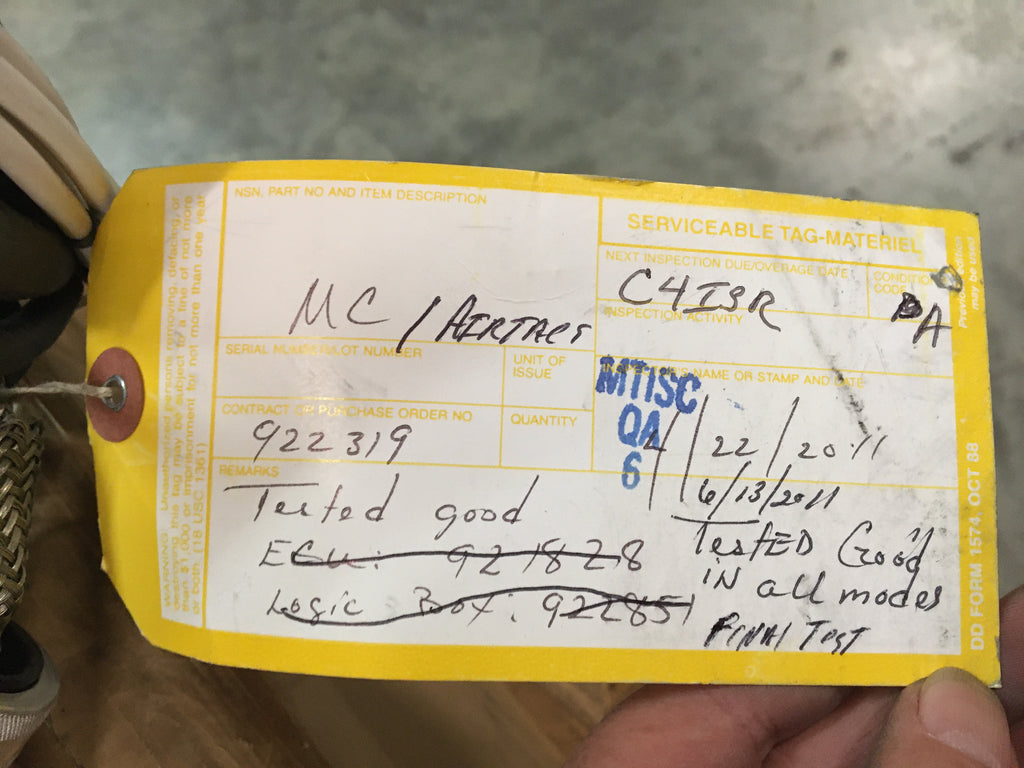 NSN, PART NO AND ITEM DESCRIPTION
MC / AIRTACS
SERIAL NUMBER/LOT NUMBER
UNIT OF
ISSUE
CONTRACT OR PURCHASE ORDER NO
922319
QUANTITY
SERVICEABLE TAG-MATERIEL
NEXT INSPECTION DUE/OVERAGE DATE
C4ISR
CONDITION
CODE
A
INSPECTION ACTIVITY
INSPECTOR'S NAME OR STAMP AND DATE
MTISC
QA
6
4/22/2011
6/13/2011
REMARKS
Tested good
ECU: 921828
Logic Box: 922851
TESTED Good
IN all modes
FINAL TEST
WARNING: Unauthorized persons removing, defacing, or
destroying this tag may be subject to a fine of not more
than $1,000 or imprisonment for not more than one year
or both. (18 USC 1361)
DD FORM 1574, OCT 88
Previous edition
may be used